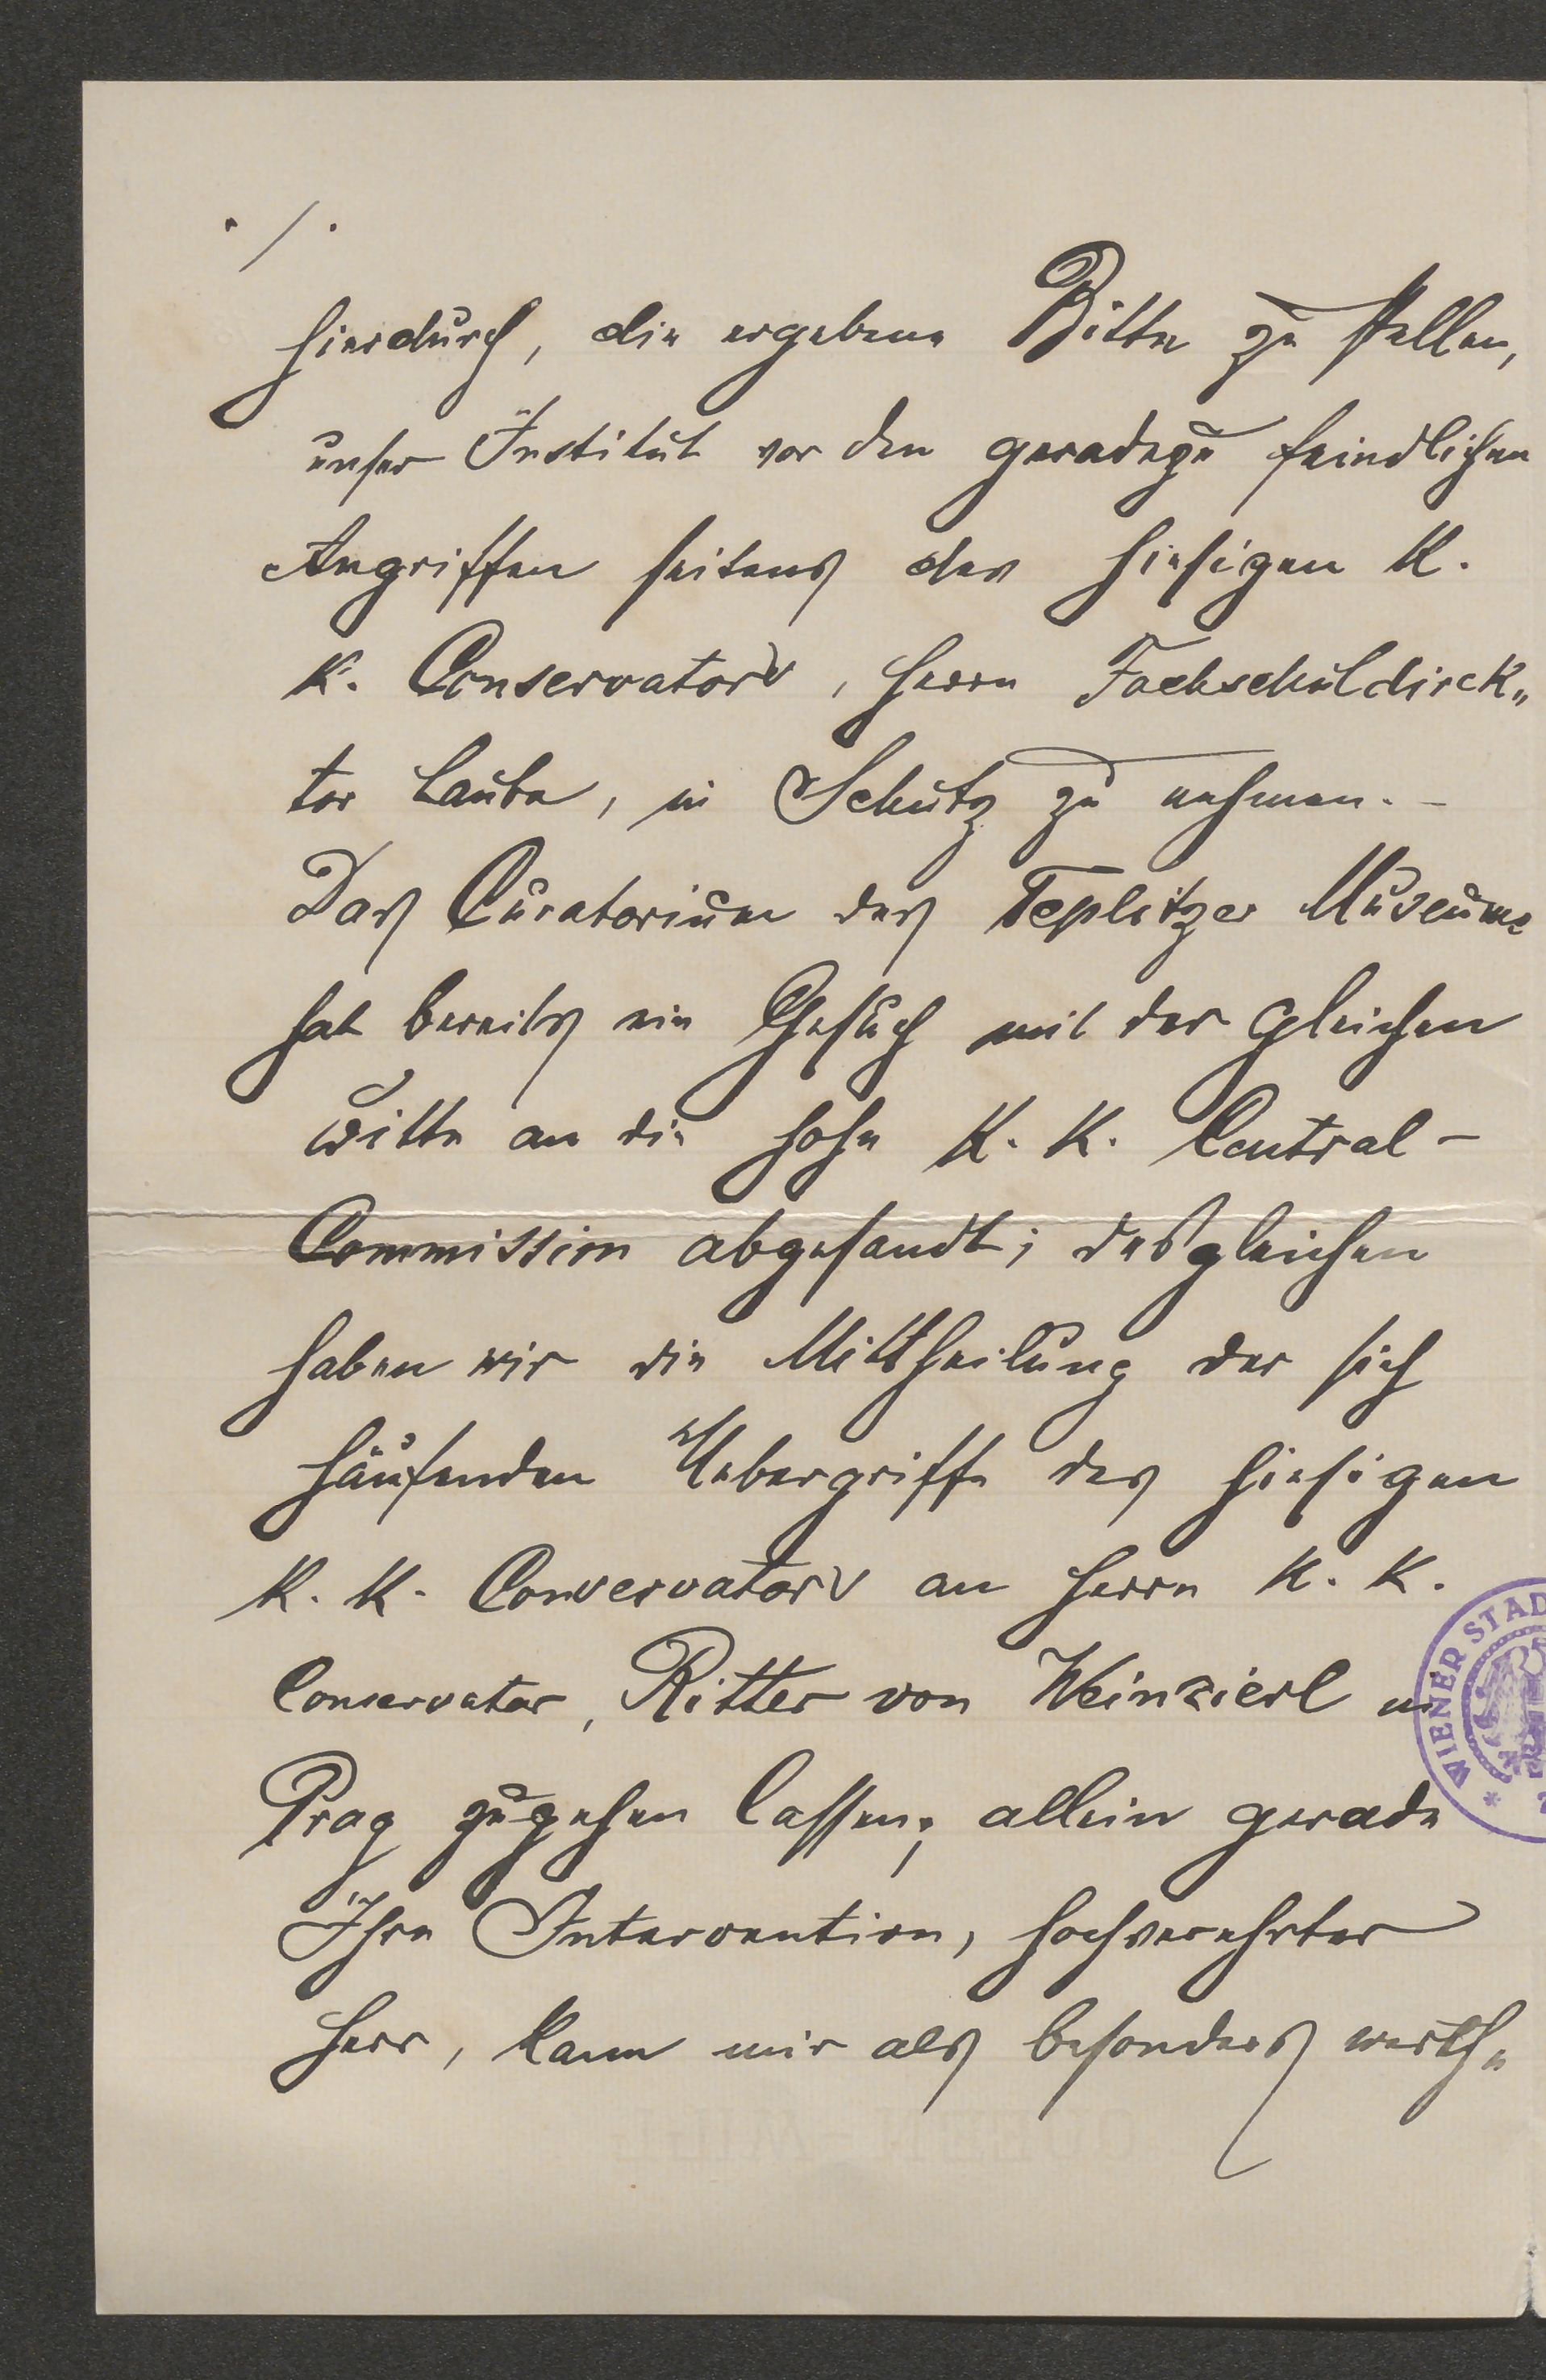 ./.
hierdurch, die ergebene Bitte zu stellen,
unser Institut vor den geradezu feindlichen
Angriffen seitens des hiesigen K.
K. Conservators, Herrn Fachschuldirek„
tor Laube, in Schutz zu nehmen. –
Das Curatorium des Teplitzer Museums
hat bereits ein Gesuch mit der gleichen
Bitte an die hohe K. K. Central-
Commission abgesandt; desgleichen
haben wir die Mittheilung der sich
häufenden Uebergriffe des hiesigen
K. K. Conservators an Herrn K. K.
Conservator, Ritter von Weinzierl in
Prag zugehen lassen; allein gerade
Ihre Intervention, hochverehrter
Herr, kann mir als besonders werthe
WIENER STAD